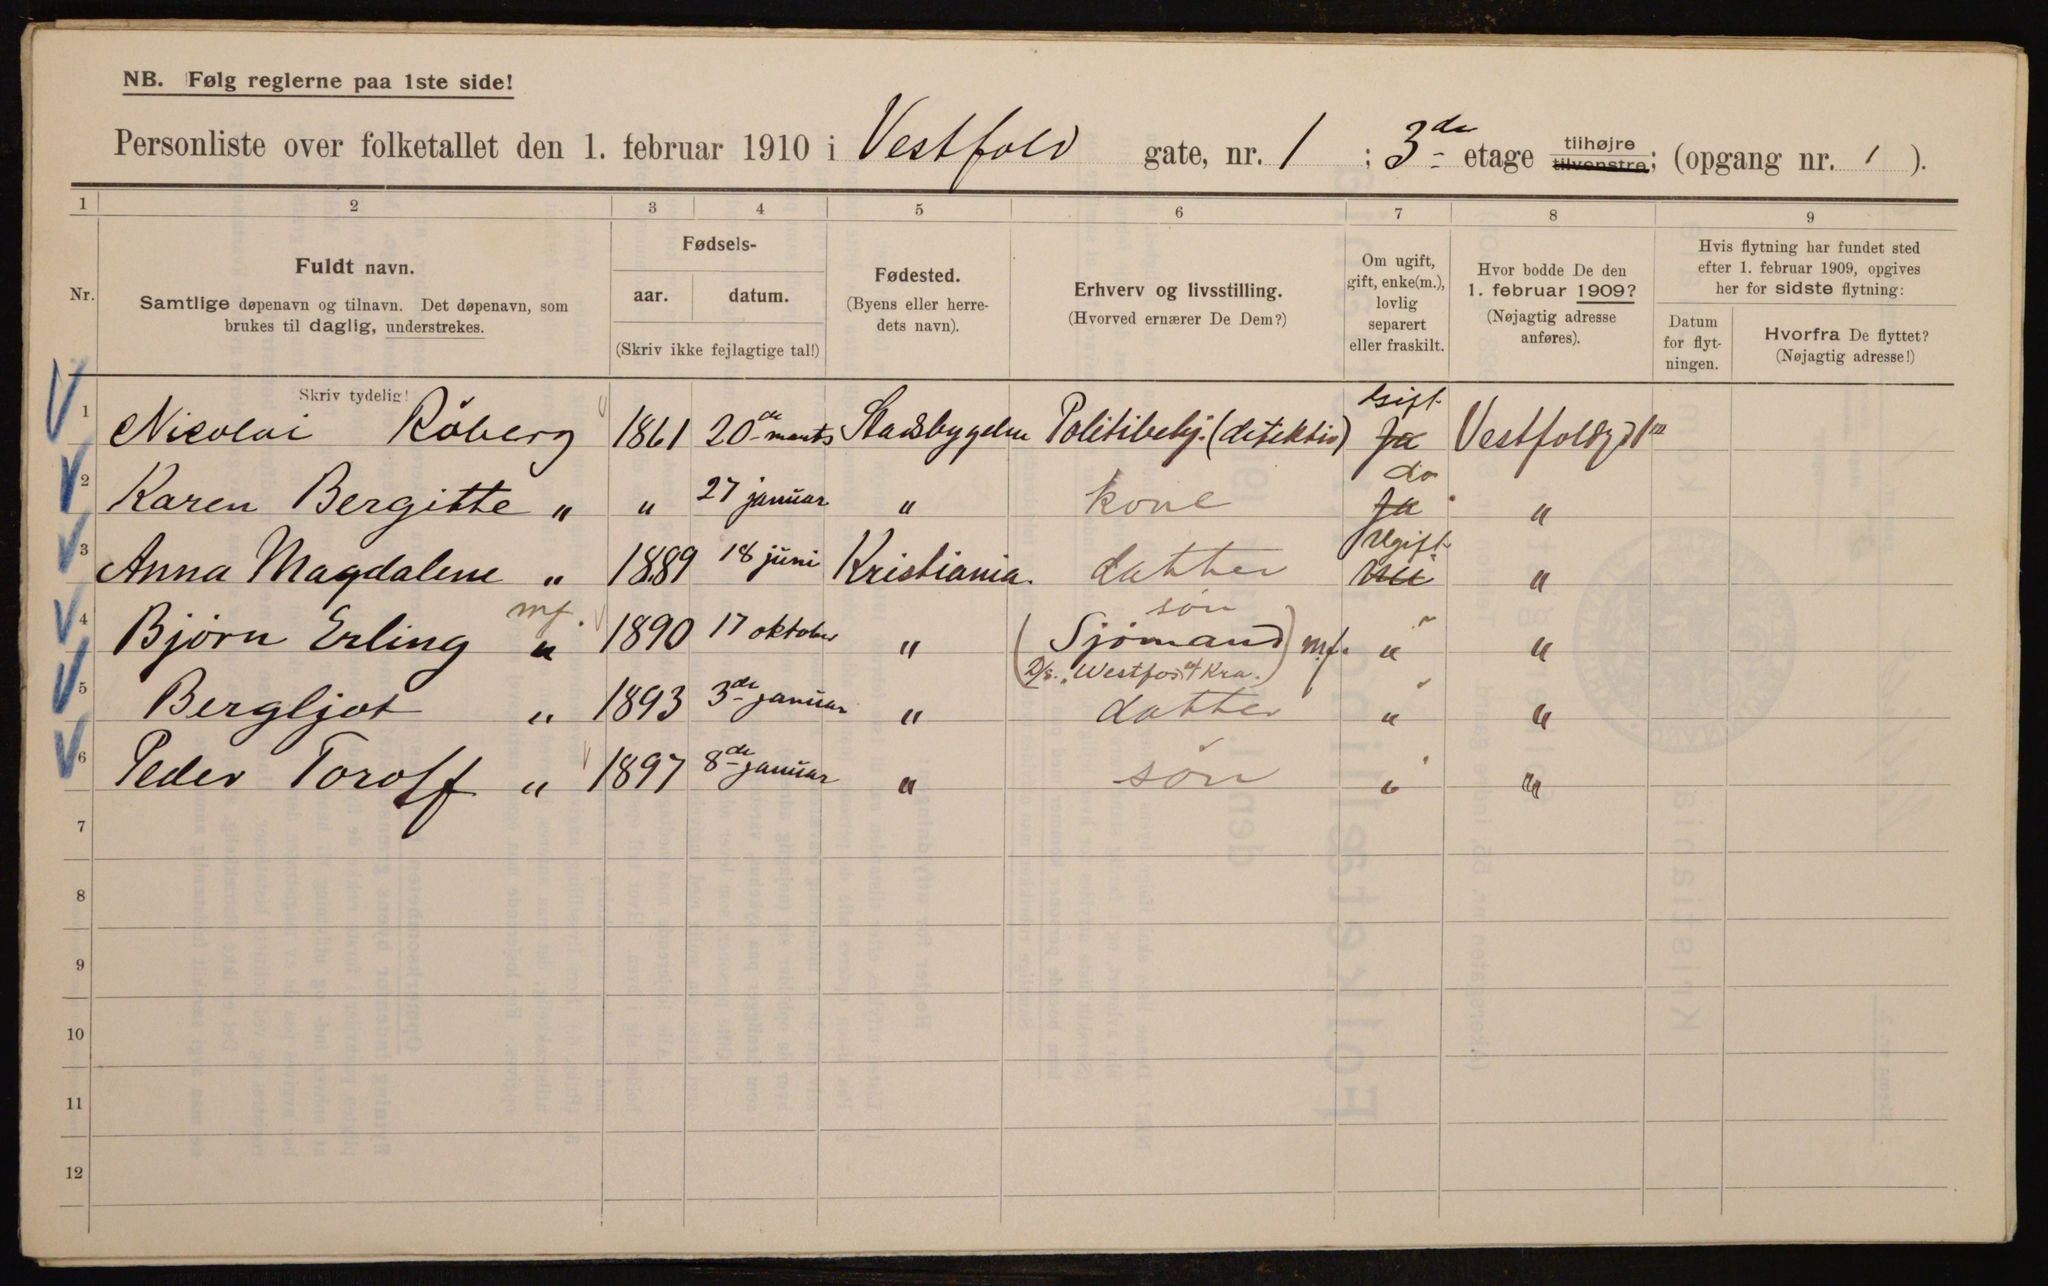 NB. Følg reglerne paa 1ste side!
Personliste over folketallet den 1. februar 1910 i Vestfold gate, nr. 1 ; 3de etage tilhøjre tilvenstre; (opgang nr. 1 ).
1 2 3 4 5 6 7 8 9
Nr.
Fuldt navn.
Samtlige døpenavn og tilnavn. Det døpenavn, som
brukes til daglig, understrekes.
Skriv tydelig!
Fødsels-
aar. datum.
(Skriv ikke fejlagtige tal!)
Fødested.
(Byens eller herre-
dets navn).
Erhverv og livsstilling.
(Hvorved ernærer De Dem?)
Om ugift,
gift, enke(m.),
lovlig
separert
eller fraskilt.
Hvor bodde De den
1. februar 1909?
(Nøjagtig adresse
anføres).
Hvis flytning har fundet sted
efter 1. februar 1909, opgives
her for sidste flytning:
Datum
for flyt-
ningen.
Hvorfra De flyttet?
(Nøjagtig adresse!)
Gift
1 Nicolai Röberg 1861 20de marts Stadsbygden Politibetj. (detektiv) Ja Vestfoldg 1
do
2 Karen Bergitte " " 27 januar " kone Ja "
Ugift
3 Anna Magdalene " 1889 18 juni Kristiania. datter Nei "
mf. søn
4 Bjørn Erling " 1890 17 oktober " (Sjömand) mf. " "
D/s. "Westfos" af Kra.
5 Bergljot " 1893 3de januar " datter " "
6 Peder Toroff " 1897 8de januar " søn " "
7
8
9
10
11
12